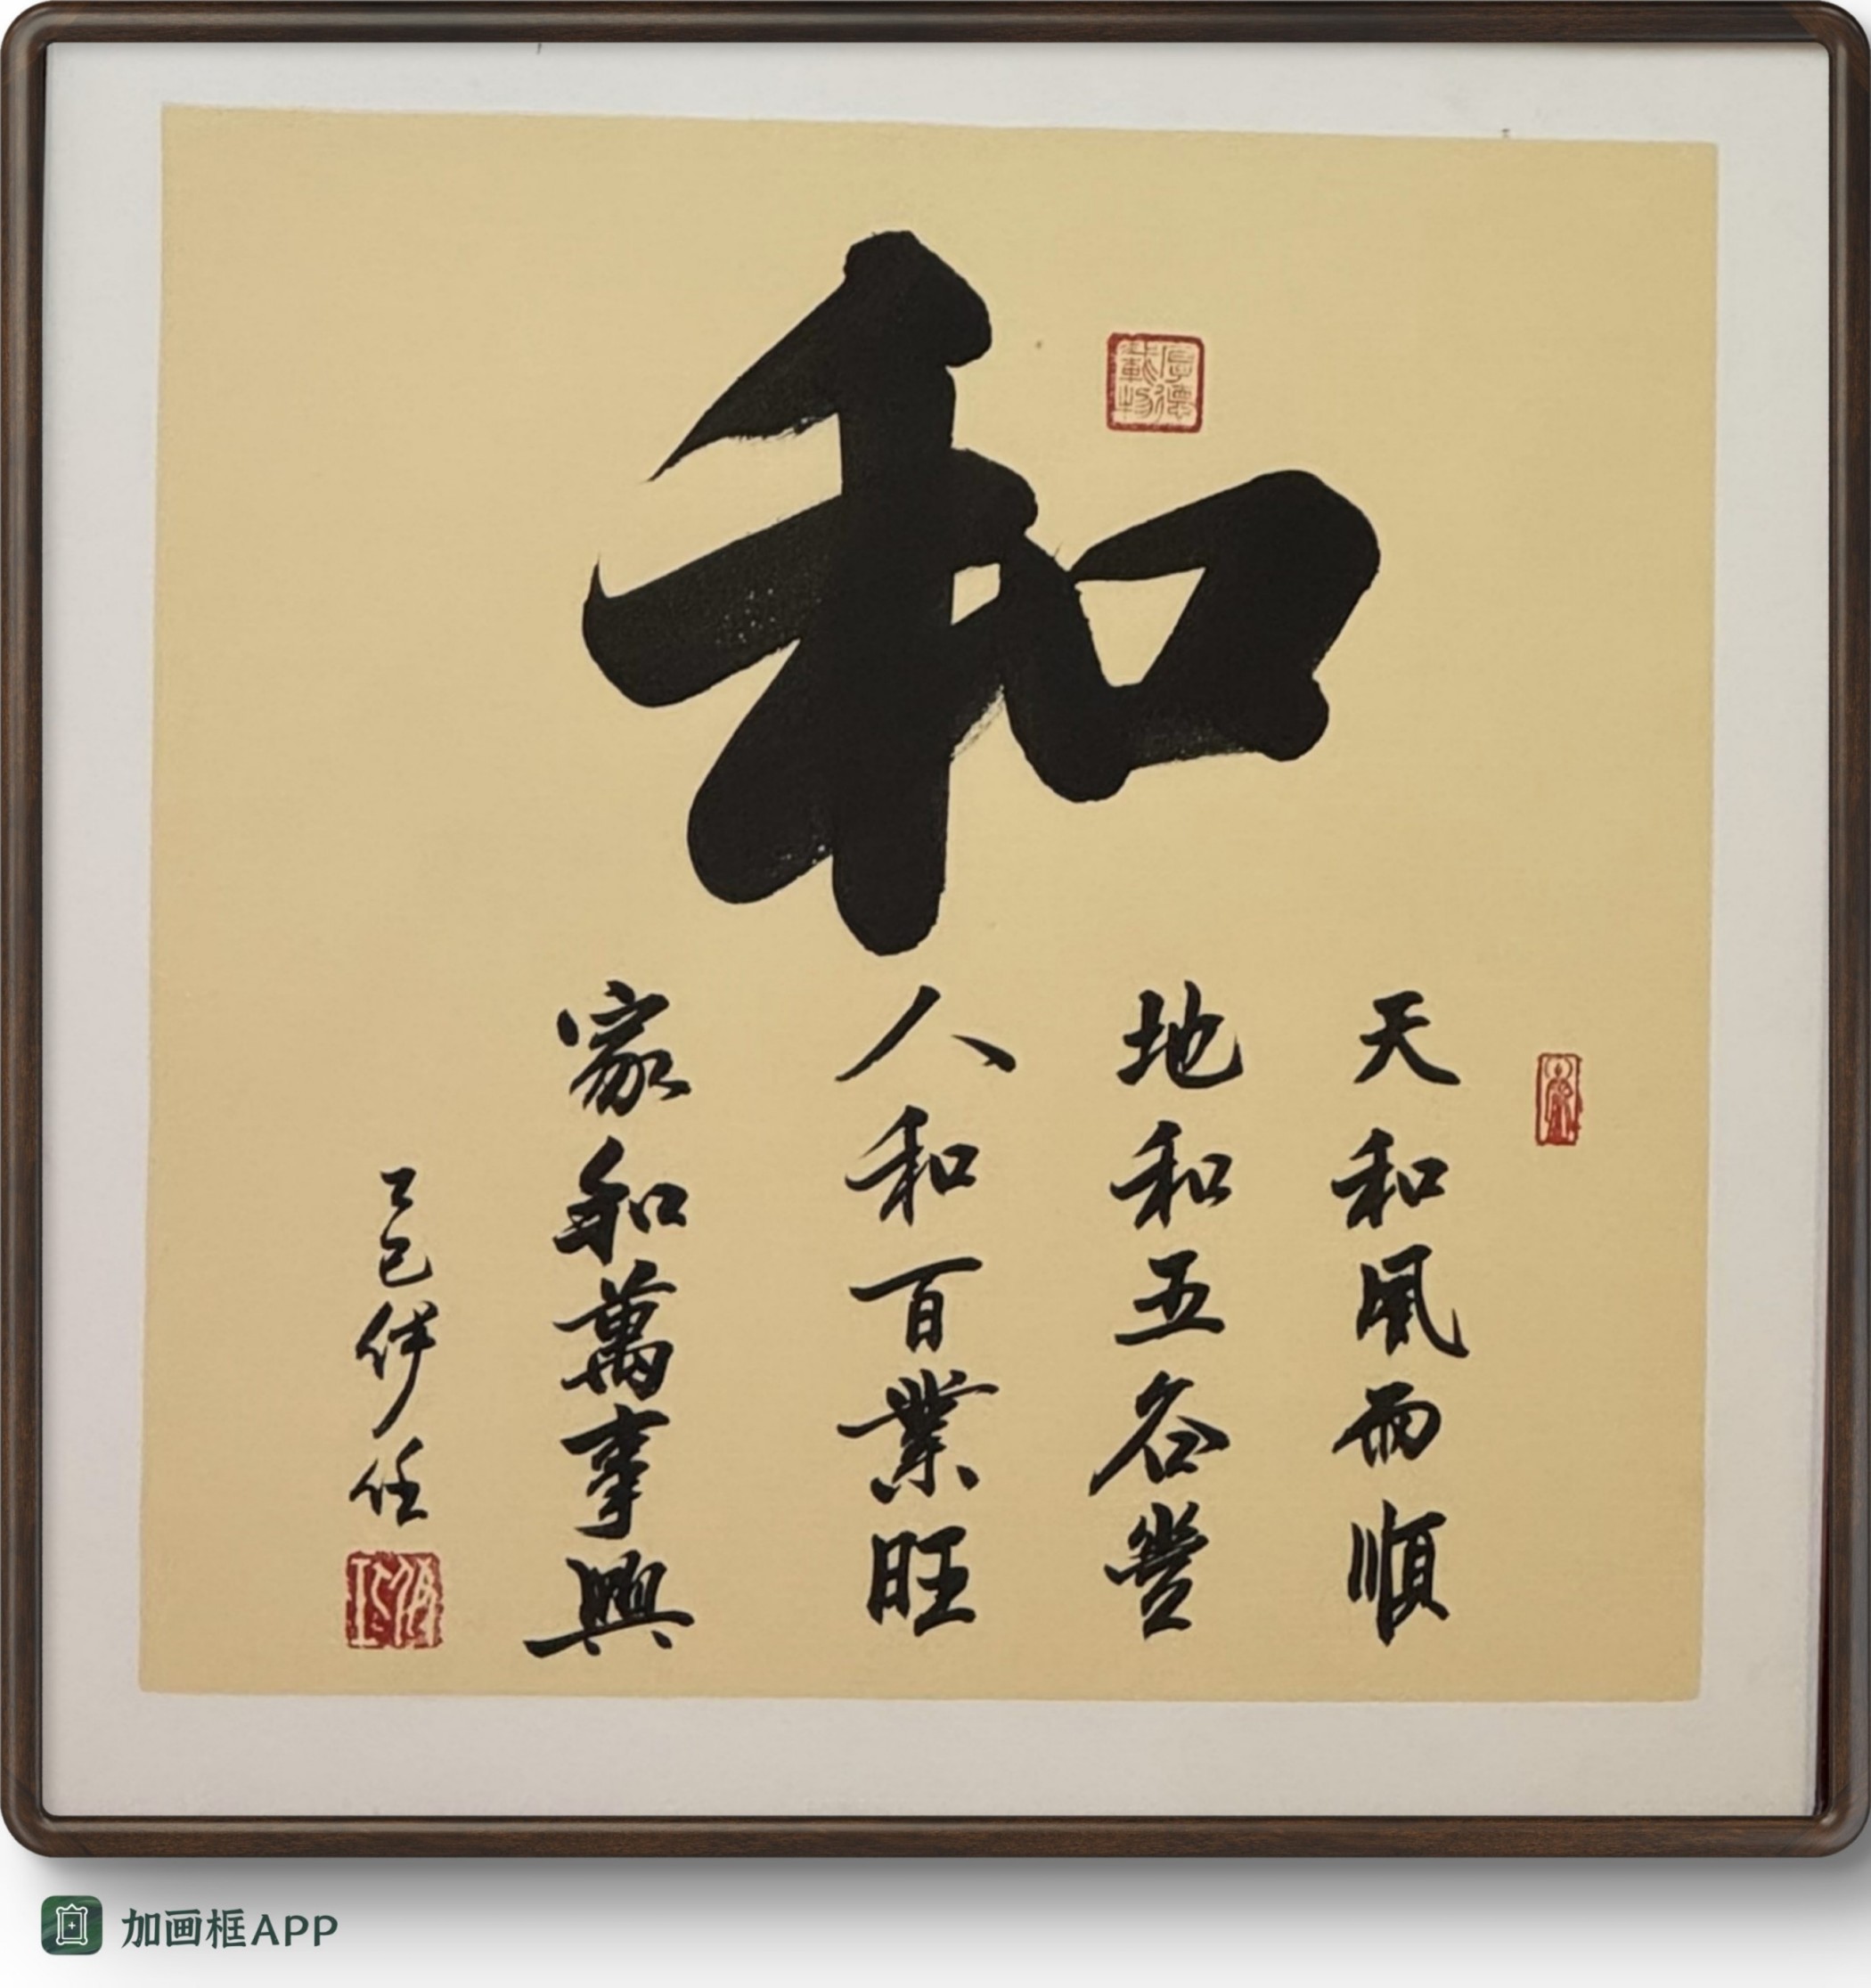 和
厚德載物
天和風雨順
地和五谷豐
人和百業旺
家和萬事興
乙巳
加画框APP